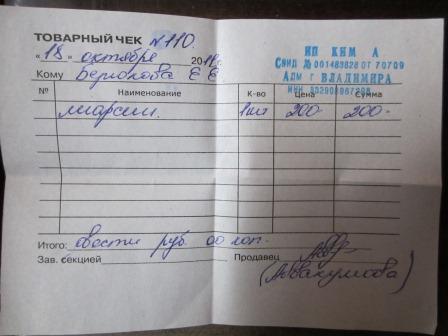 ТОВАРНЫЙ ЧЕК № 110.
"18" октября 201 г.
Кому Бирюкова Е Е
ИП КИМ А
СВИД № 001483828 ОТ 70709
АДМ Г ВЛАДИМИРА
ИНН
№ Наименование К-во Цена Сумма
1шт 200- 200-
Итого: двести руб 00 коп.
Зав. секцией Продавец
(Аввакумова)